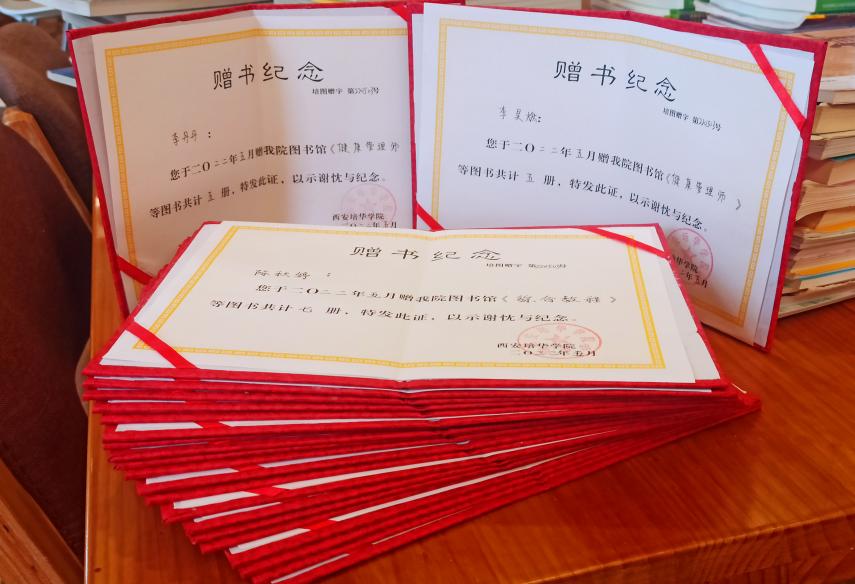 赠书纪念
培图赠字 第 号
李丹丹：
您于二〇二二年五月赠我院图书馆《健康管理师
等图书共计五册，特发此证，以示谢忱与纪念。
西安培华学院
二〇二二年五月
赠书纪念
培图赠字 第 号
李昊燃：
您于二〇二二年五月赠我院图书馆《健康管理师》
等图书共计五册，特发此证，以示谢忱与纪念。
学院
年五月
赠书纪念
培图赠字 第 号
陈秋鸽：
您于二〇二二年五月赠我院图书馆《综合教程》
等图书共计七册，特发此证，以示谢忱与纪念。
西安培华学院
二〇二二年五月